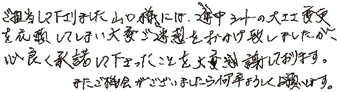 ご担当して下りました山口様には、途中シートの大工工変更
を依頼してしまい大変ご迷惑をおかけ致しましたが、
心良く承諾して下さったことを大変感謝しております。
またご機会がございましたら何卒よろしくお願います。